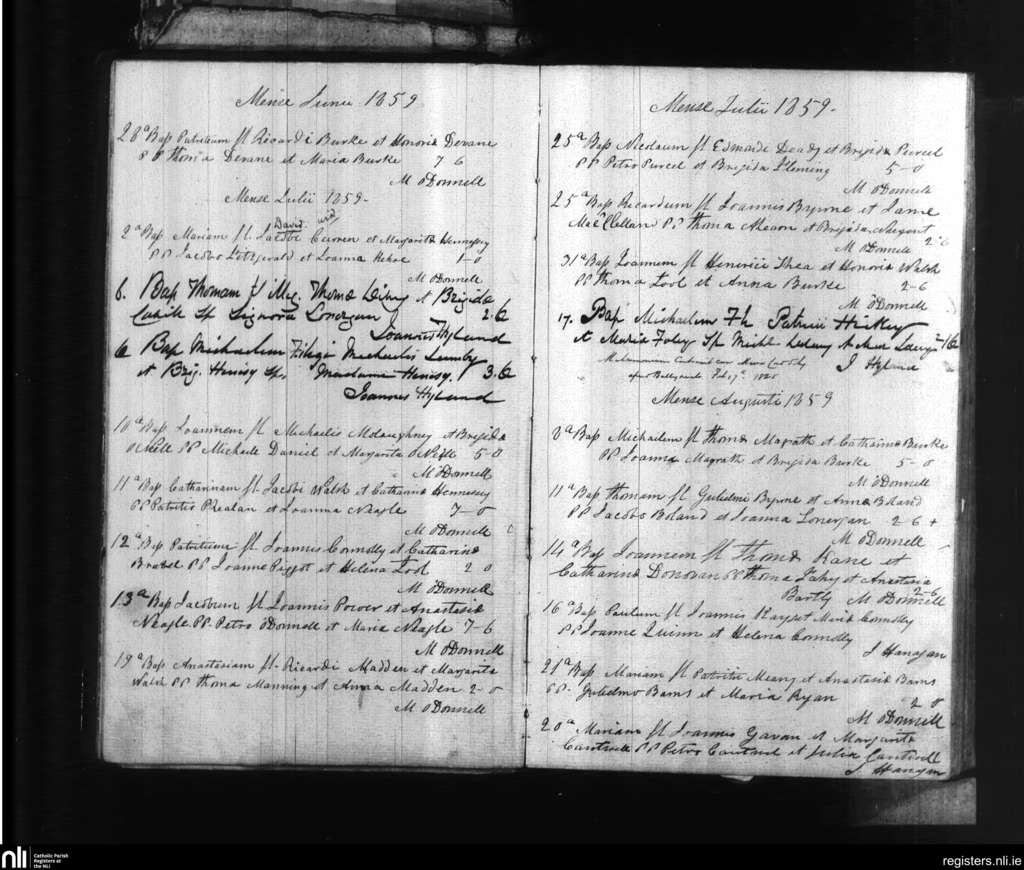 Mense Junii 1859
28ª Bap Patritium fl Ricardi Burke et Honoria Devane
PP Thoma Devane et Maria Burke 7 6
M ODonnell
Mense Julii 1859-
David
2ª Bap Mariam fl Jacobi Curren et Margarita Hennessy
PP Jacobo Fitzgerald et Joanna Kehoe 1-0
M ODonnell
6. Bap Thomam Thoma et Brigida
Cahill Sp Lonergan 2.6
Joannes Hyland
6 Bap Michaelem Michaelis
et Brig. Henisy Sp. Henisy. 3.6
Joannes Hyland
10ª Bap Joannem fl Michaelis Mclaughney et Brigida
ONeill PP Michaele Daniel et Margarita ONeill 5-0
M ODonnell
11ª Bap Catharinam fl Jacobi Walsh et Catharina Hennessy
PP Patritio Phealan et Joanna Neagle 7-0
M ODonnell
12ª Bap Patritium fl Joannis Connolly et Catharina
PP Joanne Piggot et Helena Tool 2 0
M ODonnell
13ª Bap Jacobum fl Joannis Power et Anastasia
Neagle PP. Petro ODonnell et Maria Neagle 7-6
M ODonnell
19ª Bap Anastasiam fl. Ricardi Madden et Margarita
Walsh PP Thoma Manning et Anna Madden 2-0
M ODonnell
Mense Julii 1859-
25ª Bap Nicolaum fl Edmondi Deady et Brigida Purcel
PP Petro Purcel et Brigida Fleming 5-0
M ODonnell
25ª Bap Ricardum fl Joannis Byrne et Jane
McClellan PP Thoma Ahearn et Brigida Nugent
M ODonnell 2-6
31ª Bap Joannem fl Henrici Shea et Honoria Walsh
PP Thoma Tool et Anna Burke 2-6
M ODonnell
17. Bap Michaelem Fl Patricii Hickey
et Maria Foley Sp Michl 1/6
J Hyland
Feb 1885
Mense Augusti 1859
8ª Bap Michaelem fl Thoma Magrath et Catharina Burke
PP Joanna Magrath et Brigida Burke 5-0
M ODonnell
11ª Bap Thomam fl Gulielmi Byrne et Anna Boland
PP Jacobo Boland et Joanna Lonergan 2-6 +
M ODonnell
14ª Bap Joannem fl Thoma Kane et
Catharina Donovan PP Thoma Fahy et Anastasia
Bartly M ODonnell 2-6
16ª Bap Paulum fl Joannis et Maria Connolly
PP Joanne Quinn et Helena Connolly
J Hanagan
21ª Bap Mariam fl Patritii Meany et Anastasia Barns
PP. Gulielmo Barns et Maria Ryan 2 0
M ODonnell
20ª Mariam fl Joannis Gavan et Margarita
Cantwell PP Petro Cantwell et Julia Cantwell
J Hanagan
nli
Catholic Parish
Registers at
the NLI
registers.nli.ie